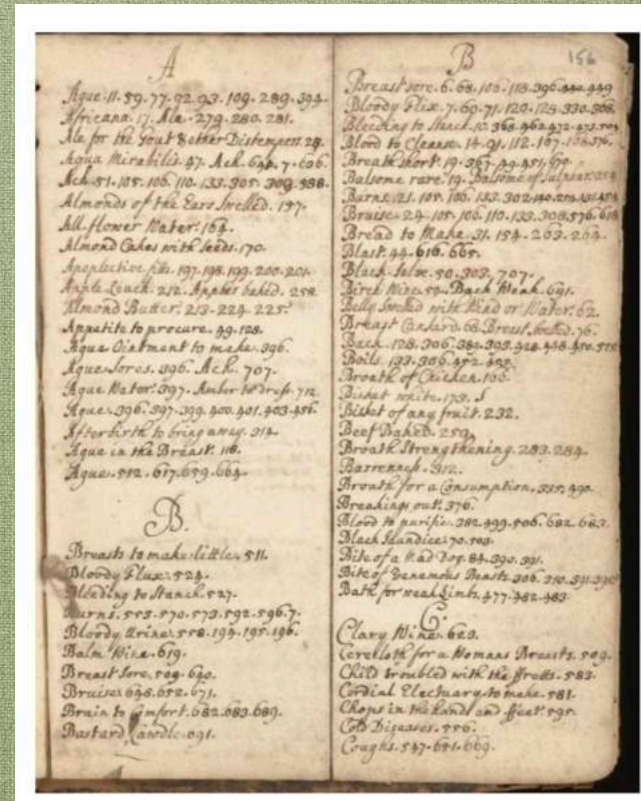 A
Ague. 11. 59. 77. 92. 93. 109. 289. 394.
Africana. 17. Ale. 279. 280. 281.
Ale for the Gout & other Distempers. 28.
Aqua Mirabilis. 47. Ach. 7. 636.
Ach. 51. 105. 106. 110. 133. 305. 309. 588.
Almonds of the Ears Swelled. 137.
All flower Water. 164.
Almond Cakes with Seeds. 170.
Apoplective fitts. 197. 198. 199. 200. 201.
Apple Leach. 212. Apples baked. 258
Almond Butter. 213. 224. 225.
Appetite to procure. 99. 128.
Ague Ointment to make. 396.
Ague Sores. 396. Ach. 707.
Ague Water. 397. Amber to dress. 712
Ague. 396. 397. 399. 400. 401. 403. 456.
Afterbirth to bring away. 314.
Ague in the Breast. 118.
Ague. 512. 617. 659. 664.
B.
Breasts to make little. 511.
Bloody Flux. 524.
Bleeding to Stanch. 527.
Burns. 553. 570. 573. 592. 596. 7.
Bloody Urine. 558. 194. 195. 196.
Balm Wine. 619.
Breast Sore. 509. 640.
Bruise. 648. 652. 671.
Brain to Comfort. 682. 683. 689.
Bastard 691.
B
156
Breast sore. 6. 68. 106. 118. 396. 449
Bloody Flix. 7. 60. 71. 120. 128. 330. 308.
Bleeding to Stanch. 10. 368. 462. 472. 473. 504
Blood to Cleanse. 14. 91. 112. 107. 376.
Breath short. 19. 367. 49. 451.
Balsome rare. 19. Balsome of Sulphur.
Burns. 21. 105. 106. 133. 302.
Bruise. 24. 105. 106. 110. 133. 308. 576. 618
Bread to Make. 31. 154. 263. 264.
Blast. 44. 616. 665.
Black Salve. 50. 303. 707.
Birch Wine. 52. Back Weak. 691.
Belly Swelled with Wind or Water. 62.
Breast Canker'd. 68. Breast Swelled. 76.
Back. 128. 306. 389. 393. 428. 448. 450.
Boils. 133. 306. 452. 453.
Broath of Chicken. 156
Bisket white. 173.
Bisket of any fruit. 232.
Beef Baked. 259.
Broath Strengthening. 283. 284.
Barrenness. 312.
Broath for a Consumption. 335. 490.
Breakings out. 376.
Blood to purifie. 382. 499. 506. 682. 683.
Black Jaundice. 70. 503.
Bite of a Mad Dog. 84. 390. 391.
Bite of Venemous Beasts. 306. 310. 391.
Bath for weak Limbs. 477. 482. 483.
C.
Clary Wine. 623.
Cerecloth for a Womans Breasts. 509.
Child troubled with the Fretts. 583.
Cordial Electuary to make. 581.
Chops in the hands and feet. 595.
Cold Diseases. 556.
Coughs. 547. 651. 669.